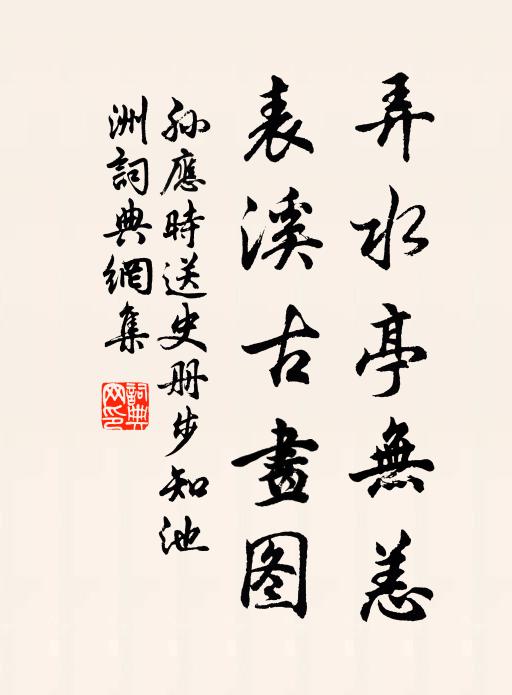 弄水亭無恙
表溪古畫图
孙應時送史册步知池
洲詞典網集
詞典
网印